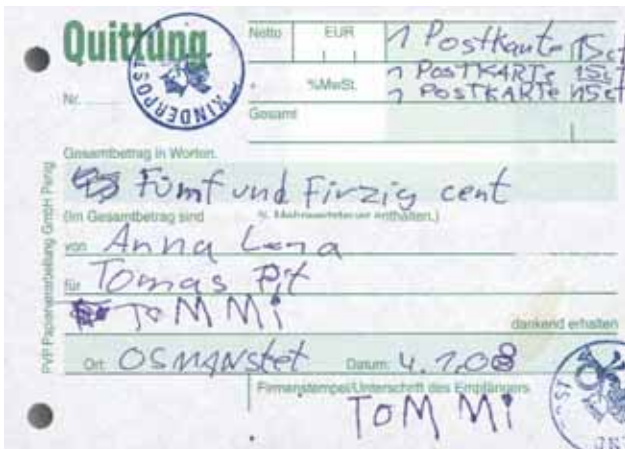 Quittung
Netto EUR 1 Postkaute 15ct
+ %MwSt. 1 POSTKARTE 15ct
Nr. 1 POSTKARTE 15ct
Gesamt
KINDERPOST
Gesamtbetrag in Worten.
Fümf und Firzig cent
(Im Gesamtbetrag sind % Mehrwertsteuer enthalten.)
von Anna Lena
für Tomas Pit
ToMMi
dankend erhalten
Ort OSMANstet Datum: 4.1.08
Firmenstempel/Unterschrift des Empfängers
TOM Mi
PVP Papierverarbeitung GmbH Penig